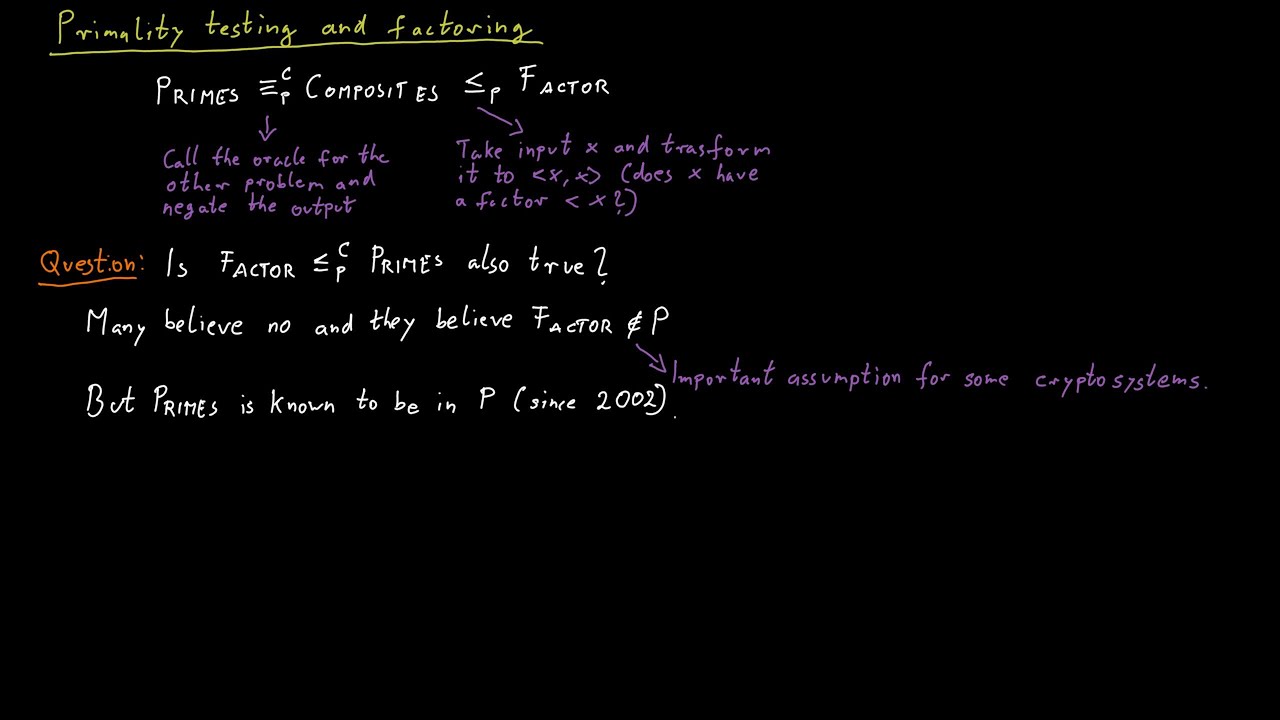 Primality testing and factoring
PRIMES ≡ᶜₚ COMPOSITES ≤ₚ FACTOR
Call the oracle for the
other problem and
negate the output
Take input x and trasform
it to <x, x> (does x have
a factor < x?)
Question: Is FACTOR ≤ᶜₚ PRIMES also true?
Many believe no and they believe FACTOR ∉ P
Important assumption for some cryptosystems.
But PRIMES is known to be in P (since 2002).